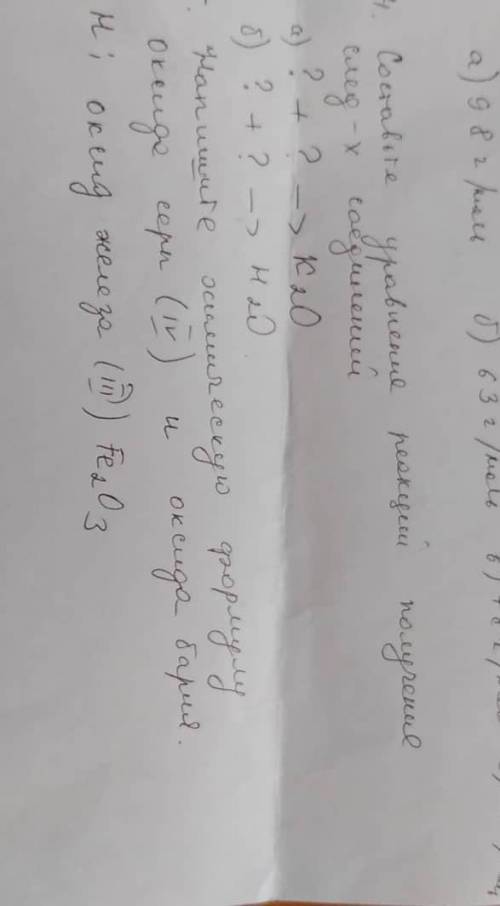 а) 98 г/моль б) 63 г/моль в)
4. Составьте уравнение реакций получения
след-х соединений
а) ? + ? —> K2O
б) ? + ? —> H2O
Напишите химическую формулу
оксида серы (IV) и оксида бария.
Н; оксид железа (III) Fe2O3